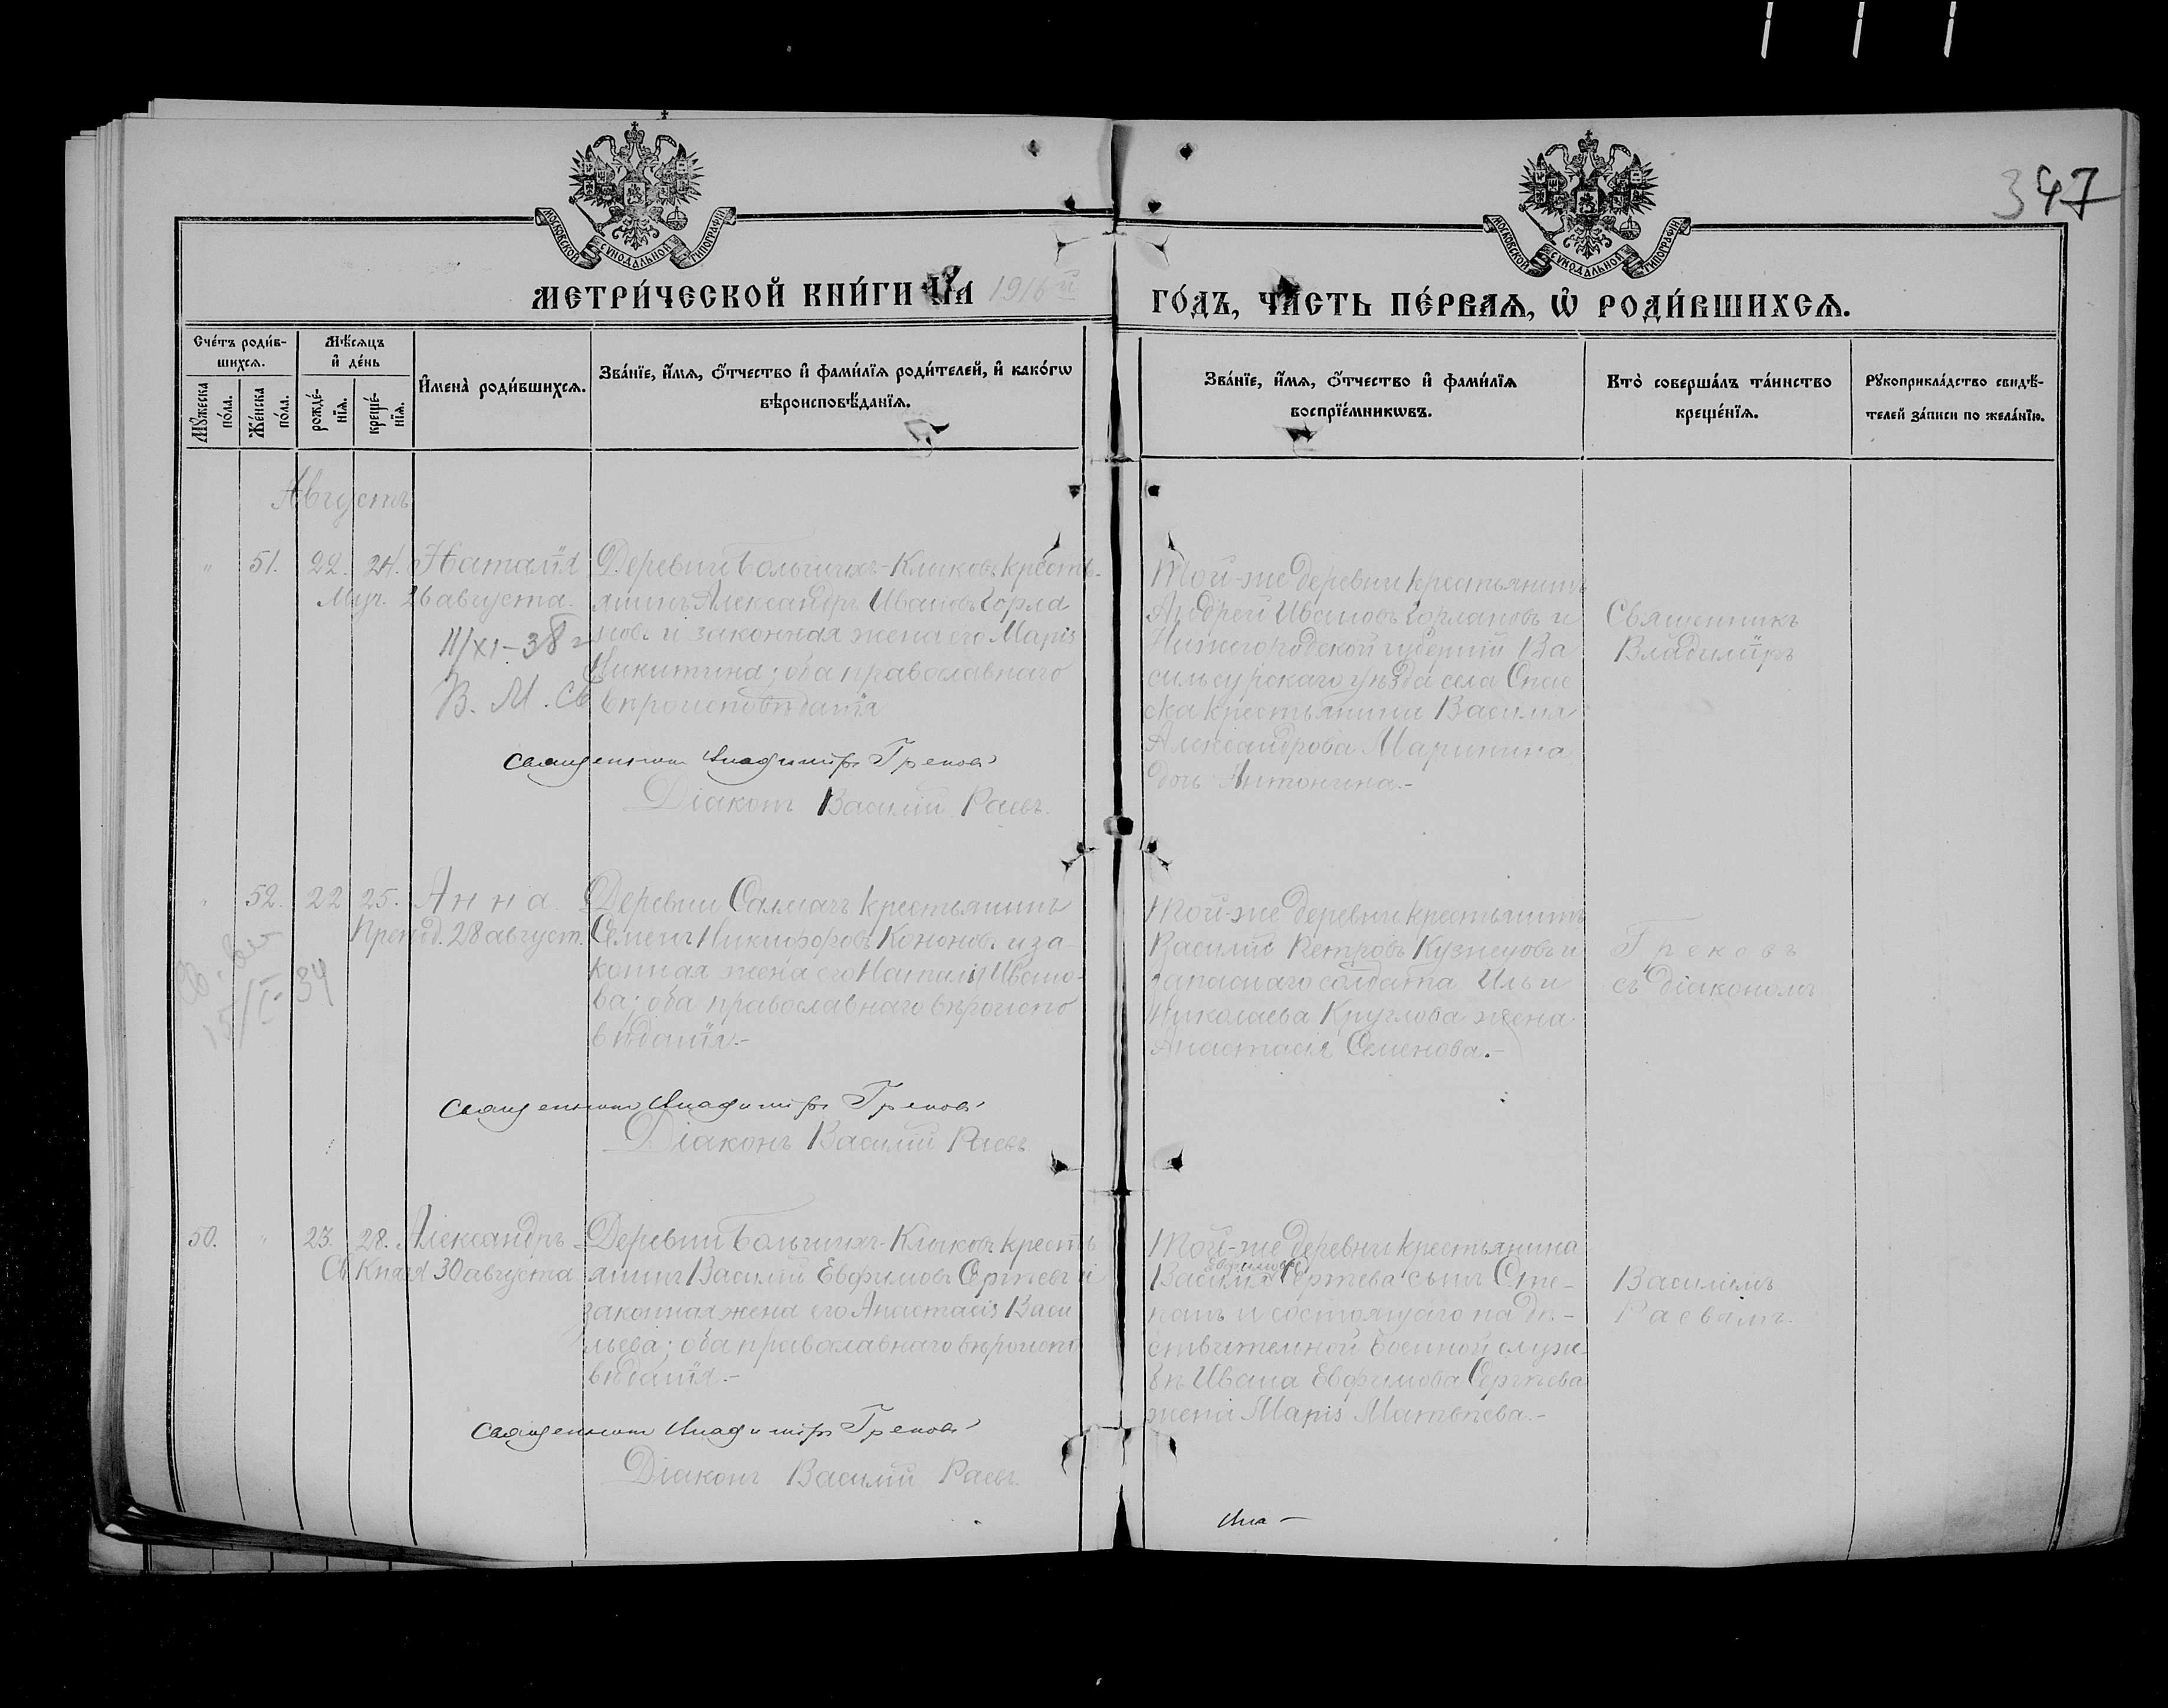 347
МОСКОВСКОЙ СѴНОДАЛЬНОЙ ТИПОГРАФІИ
МОСКОВСКОЙ СѴНОДАЛЬНОЙ ТИПОГРАФІИ
МЕТРИ́ЧЕСКОЙ КНИ́ГИ НА 1916й
ГО́ДЪ, ЧА́СТЬ ПЕ́РВАЯ, Ѡ РОДИ́ВШИХСѦ.
Сче́тъ роди́в-
шихсѧ.
Мꙋ́жеска по́ла.
Же́нска по́ла.
Мѣ́сѧцъ и҆ де́нь
рожде́-нїѧ.
креще́-нїѧ.
И҆мена̀ роди́вшихсѧ.
Зва́нїе, и҆́мѧ, ѻ҆́тчество и҆ фами́лїѧ роди́телей, и҆ како́гѡ
вѣроисповѣ́данїѧ.
Зва́нїе, и҆́мѧ, ѻ҆́тчество и҆ фами́лїѧ
воспрїе́мникѡвъ.
Кто̀ соверша́лъ та́инство
креще́нїѧ.
Рꙋкоприкла́дство свидѣ́-
телей за́писи по жела́нїю.
Августъ
" 51. 22. 24. Наталія
Муч. 26 августа.
11/XI-38 г
В. М. Св
Деревни Большихъ-Клыковъ кресть-
янинъ Александръ Ивановъ Горла
новъ и законная жена его Марія
Никитина; оба православнаго
вѣроисповѣданія
Священникъ Владиміръ Грековъ
Діаконъ Василій Раевъ.
Той-же деревни крестьянинъ
Андрей Ивановъ Горлановъ и
Нижегородской губерніи Ва
сильсурскаго уѣзда села Спас
ска крестьянина Василия
Александрова Маринина
дочь Антонина.-
Священникъ
Владиміръ
" 52. 22 25. Анна.
Препод. 28 август.
15/I-34
Деревни Салмачъ крестьянинъ
Семенъ Никифоровъ Кононовъ и за-
конная жена его Наталія Ивано-
ва; оба православнаго вѣроиспо
вѣданія.-
Священникъ Владиміръ Грековъ
Діаконъ Василій Раевъ.
Той-же деревни крестьянинъ
Василий Петровъ Кузнецовъ и
запаснаго солдата Ильи
Николаева Круглова жена
Анастасія Семенова.-
Грековъ
съ діакономъ
50. " 23. 28. Александръ
Св. Князя 30 августа
Деревни Большихъ-Клыковъ кресть
янинъ Василій Евфимовъ Сергѣевъ и
законная жена его Анастасія Васи
льева; оба православнаго вѣроиспо
вѣданія.-
Священникъ Владиміръ Грековъ
Діаконъ Василій Раевъ.
Той-же деревни крестьянина
Евфимова
Василія Сергѣева сынъ Сте-
панъ и состоящаго на дѣ-
ствительной военной служ-
бѣ Ивана Евфимова Сергѣева
жена Марія Матвѣева.-
Василіемъ
Раевымъ.
Вла -